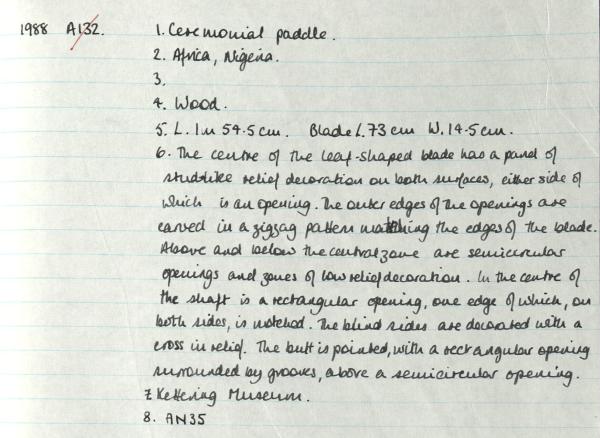 1988 A132. 1. Ceremonial paddle.
2. Africa, Nigeria.
3.
4. Wood.
5. L. 1m 54.5cm. Blade L. 73cm W. 14.5cm.
6. The centre of the leaf-shaped blade has a panel of
studlike relief decoration on both surfaces, either side of
which is an opening. The outer edges of the openings are
carved in a zigzag pattern matching the edges of the blade.
Above and below the central zone are semicircular
openings and zones of low relief decoration. In the centre of
the shaft is a rectangular opening, one edge of which, on
both sides, is notched. The blind sides are decorated with a
cross in relief. The butt is pointed, with a rectangular opening
surrounded by grooves, above a semicircular opening.
7. Kettering Museum.
8. AN35